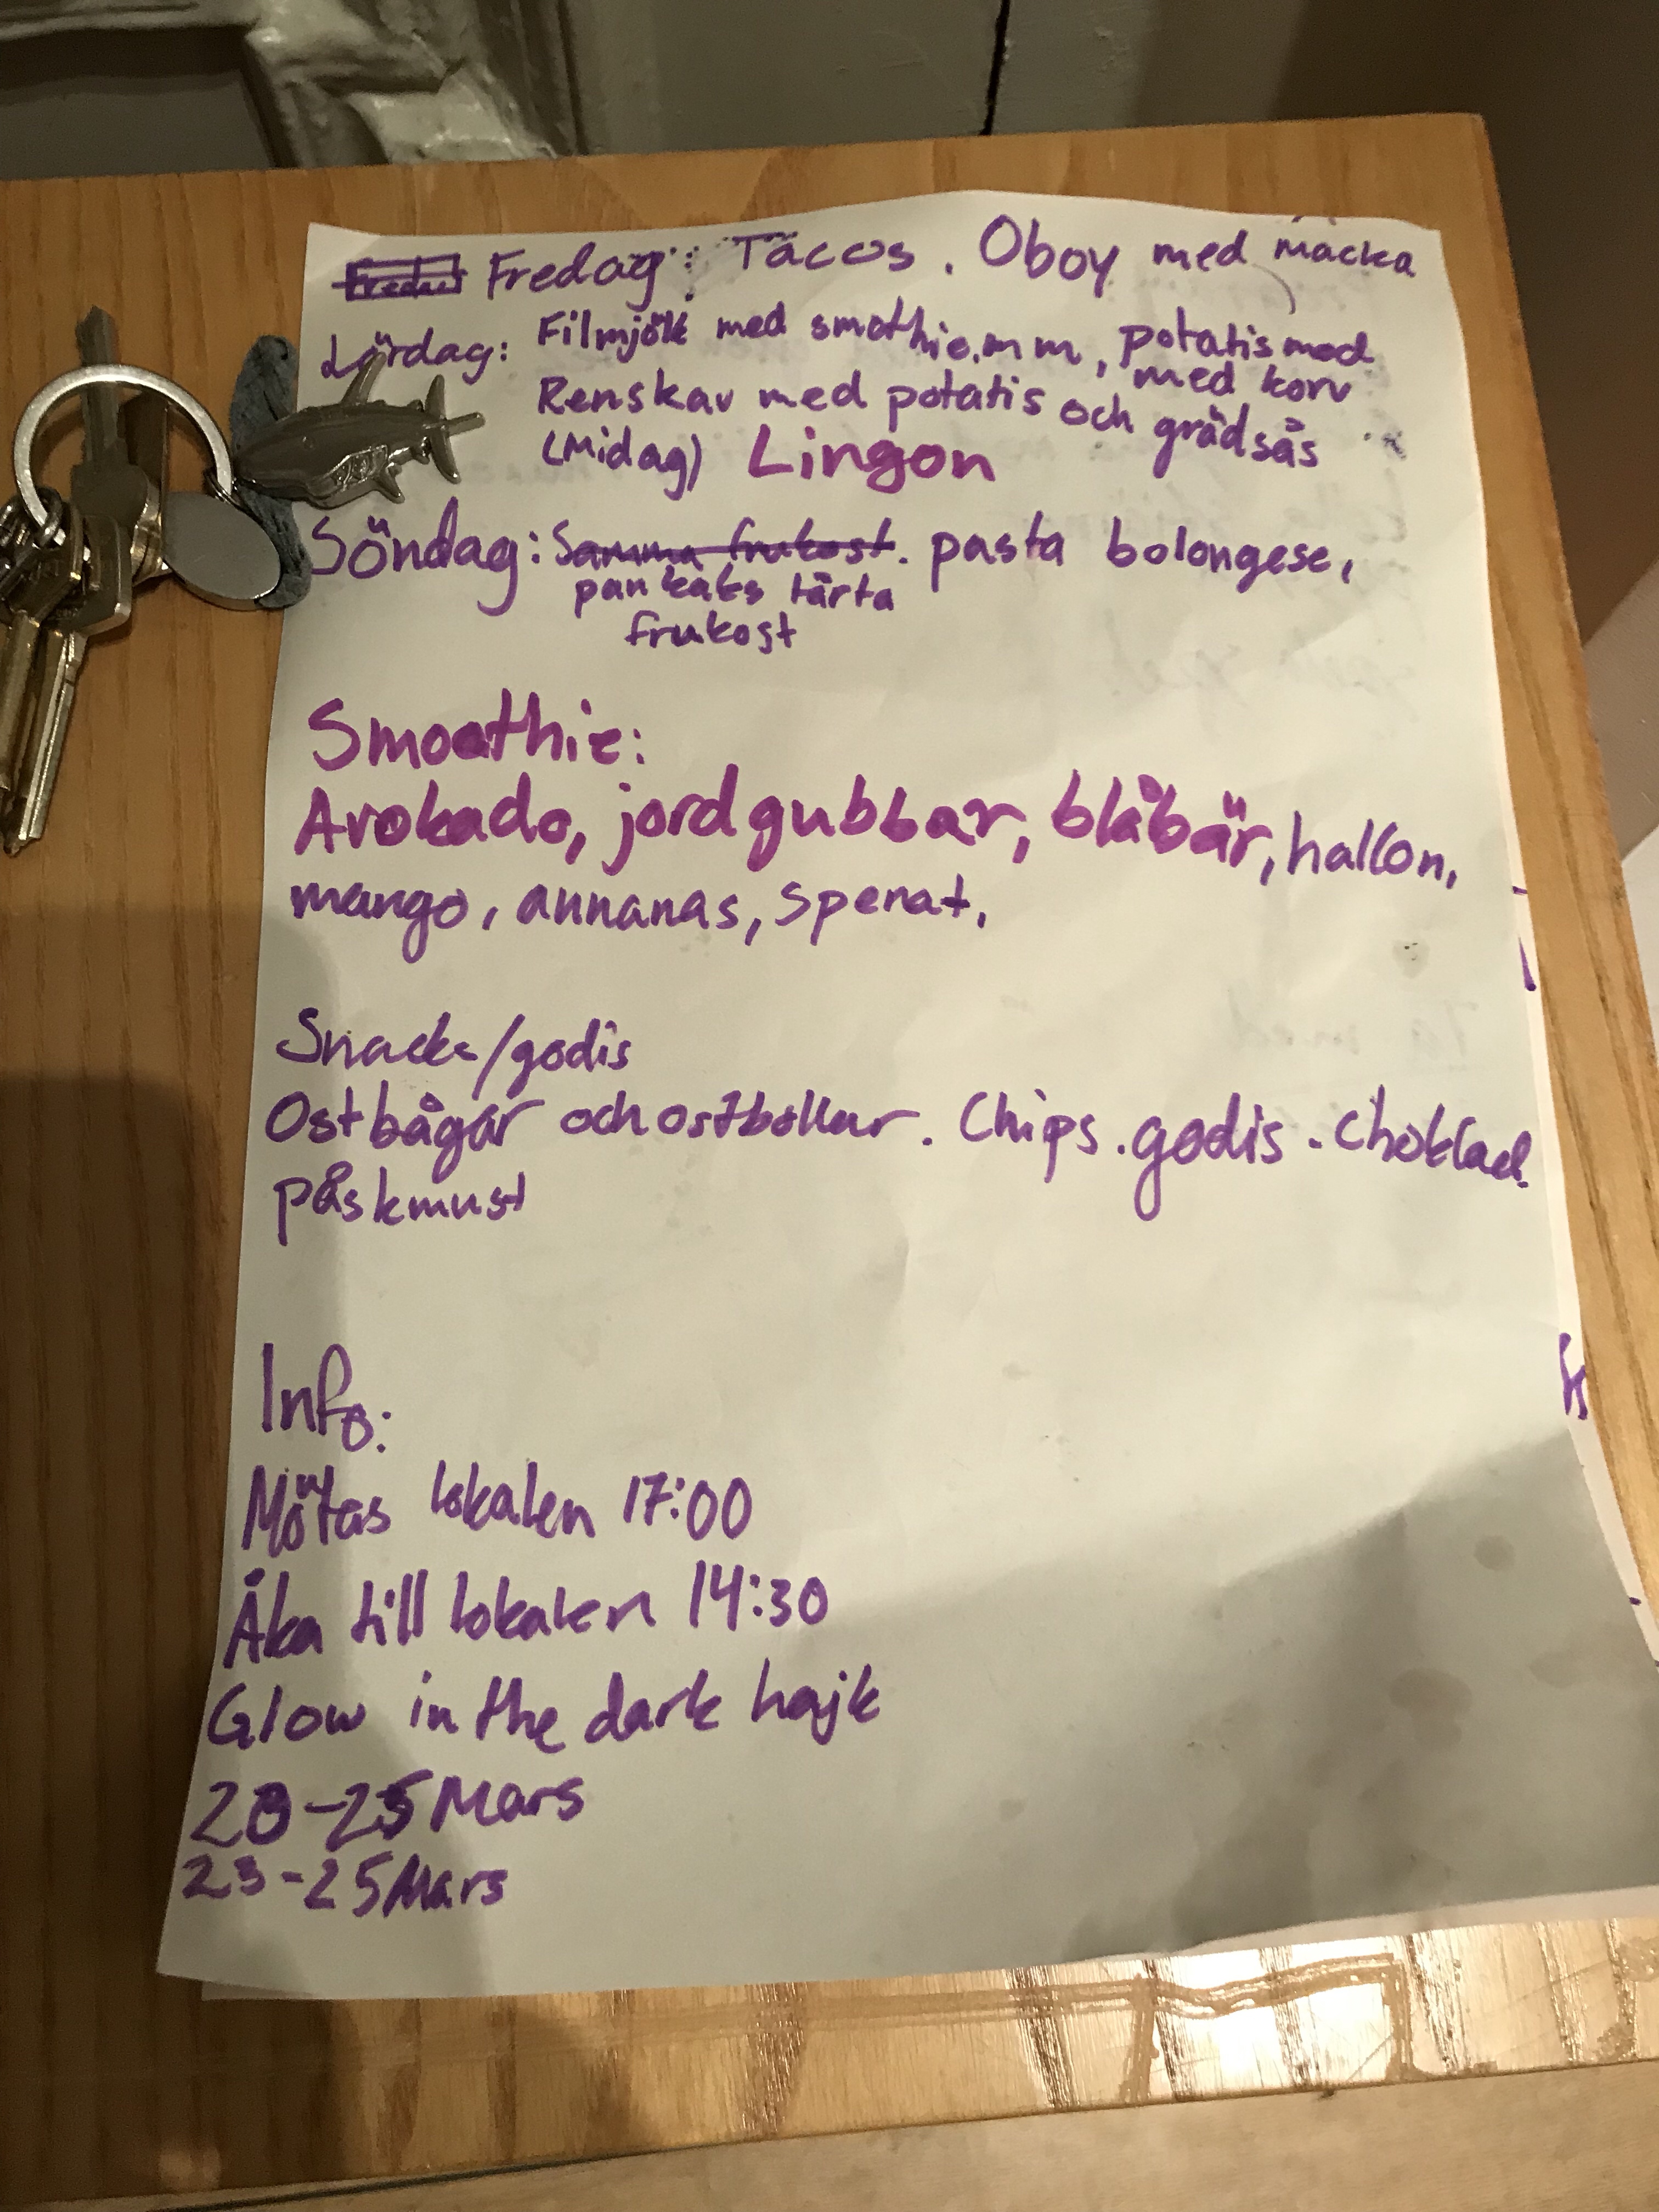 Fredag: Tacos. Oboy med macka
Lördag: Filmjölk med smothie.mm, potatismod
med korv
Renskav med potatis och grädsås
(Midag) Lingon
Söndag: Samma frukost. pasta bolongese,
pankaks tårta
frukost
Smoothie:
Avokado, jordgubbar, blåbär, hallon,
mango, annanas, spenat.
Snacks/godis
Ostbågar och ostbollar. Chips. godis. choklad.
påskmust
Info:
Mötas lokalen 17:00
Åka till lokalen 14:30
Glow in the dark hajk
23-25 Mars
23-25 Mars